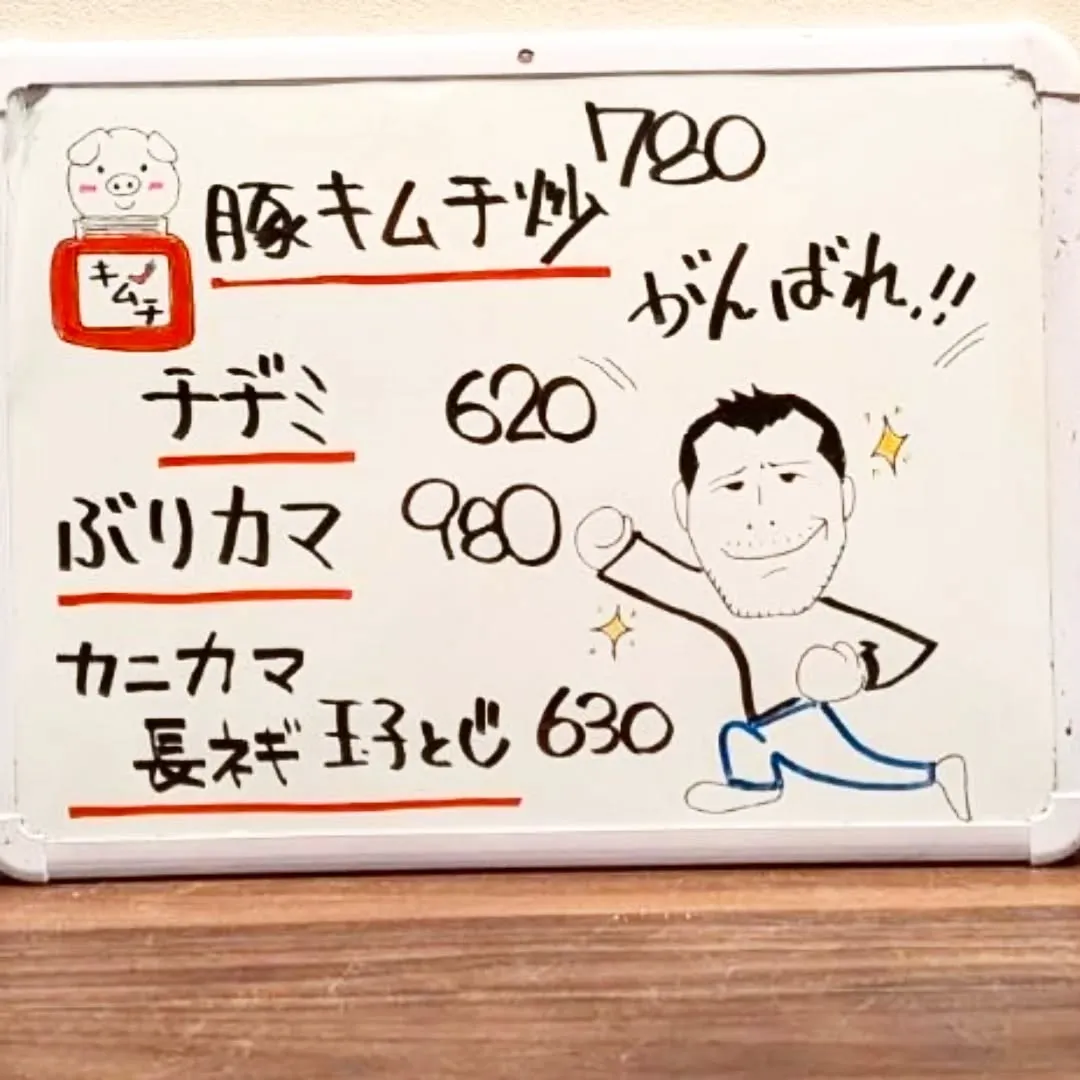 豚キムチ炒 780
キムチ
がんばれ!!
チヂミ 620
ぶりカマ 980
カニカマ
長ネギ 玉子とじ 630